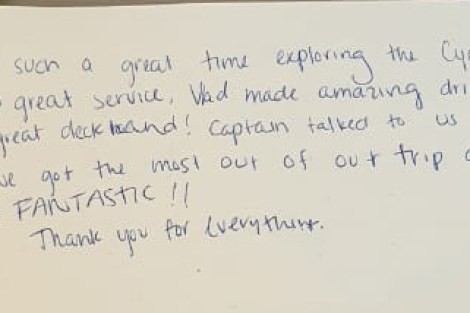 such a great time exploring the Cy
great service, Vlad made amazing dri
great deckhand! Captain talked to us
we got the most out of our trip
FANTASTIC !!
Thank you for everything.